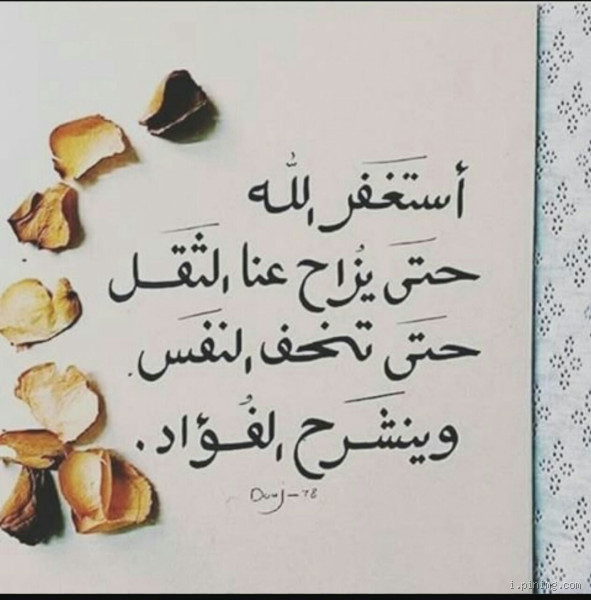 أستَغفر الله
حتَى يُزاح عنا الثَقَل
حتَى تخف النفَس
وينشَرح الفُؤاد.
i.pinimg.com